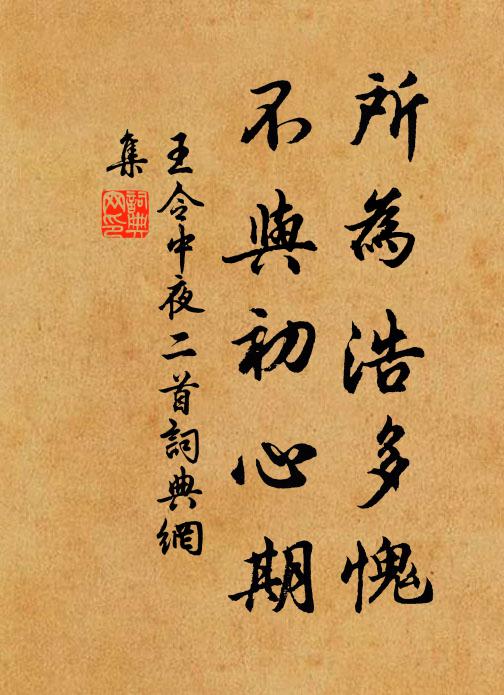 所為浩多愧
不與初心期
王令中夜二首詞典網
集
詞典
网印